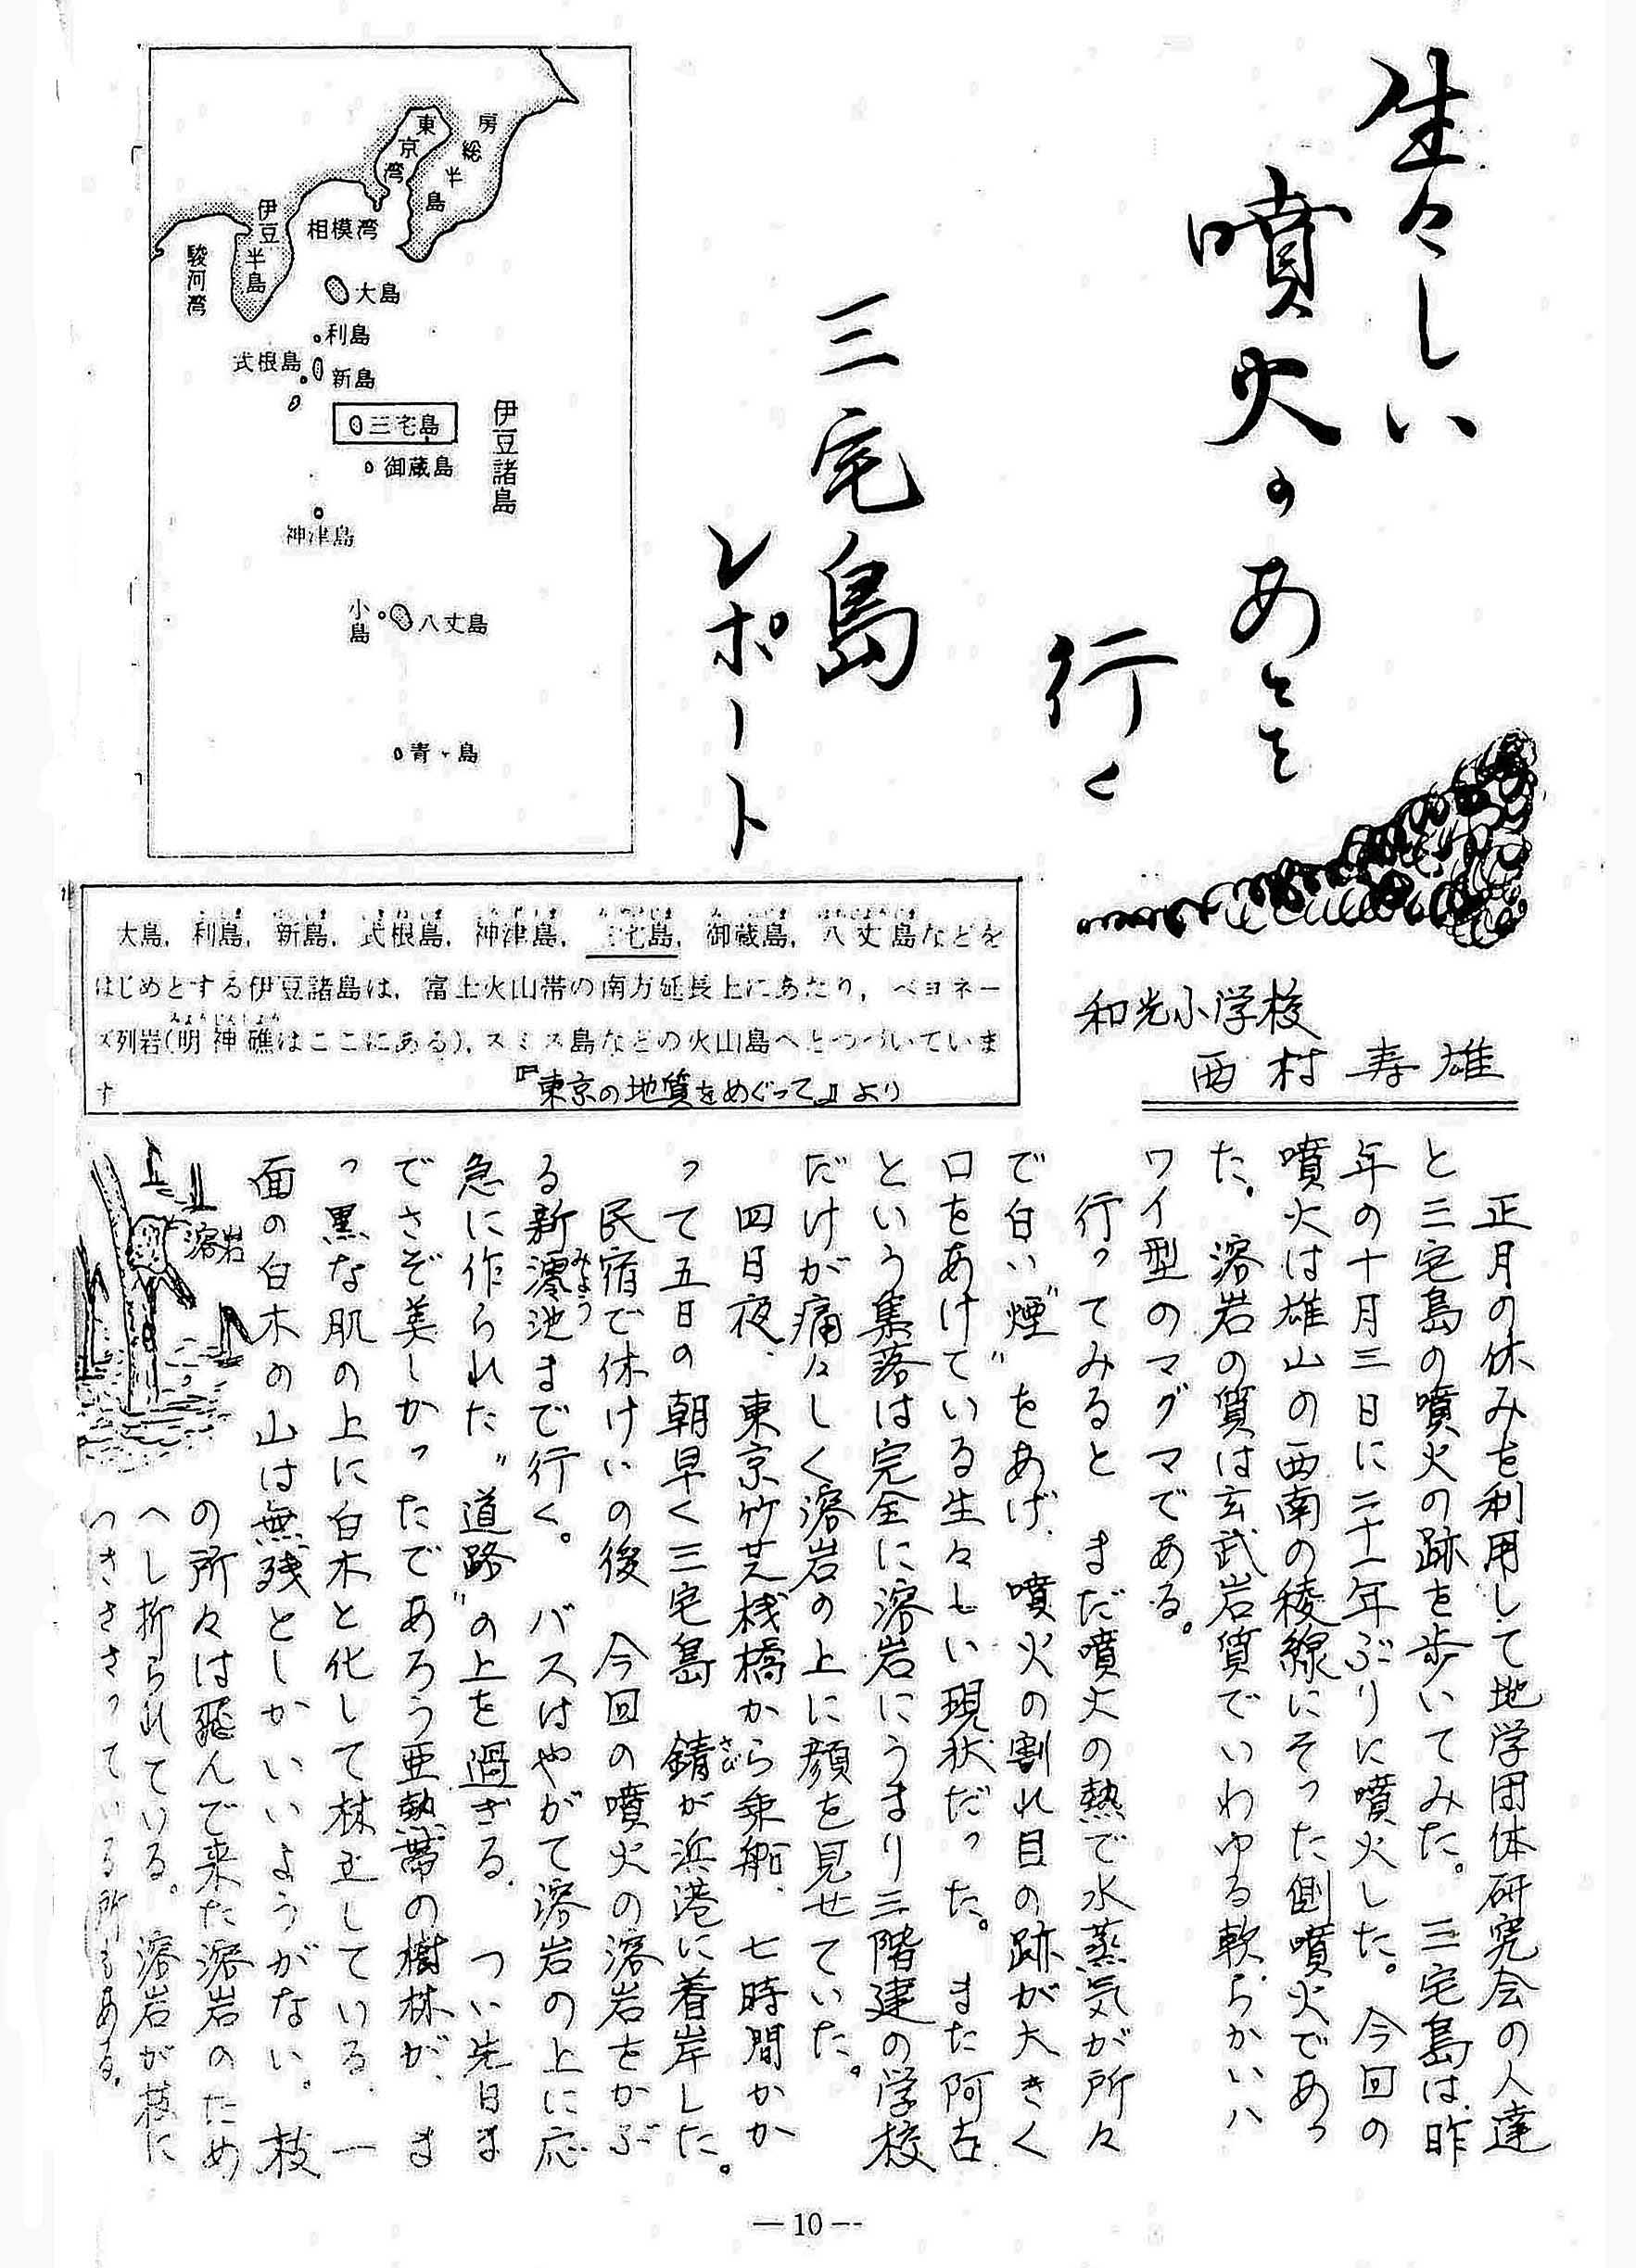 生々しい
噴火のあとを
行く
三宅島
レポート
和光小学校
西村寿雄
房総半島
東京湾
相模湾
伊豆半島
駿河湾
大島
利島
新島
式根島
三宅島
御蔵島
伊豆諸島
神津島
八丈島
小島
青ヶ島
大島，利島，新島，式根島，神津島，三宅島，御蔵島，八丈島などを
はじめとする伊豆諸島は，富士火山帯の南方延長上にあたり，ベヨネー
ズ列岩(明神礁はここにある)，スミス島などの火山島へとつづいていま
す
『東京の地質をめぐって』より
正月の休みを利用して地学団体研究会の人達
と三宅島の噴火の跡を歩いてみた。三宅島は、昨
年の十月三日に二十一年ぶりに噴火した。今回の
噴火は雄山の西南の稜線にそった側噴火であっ
た。溶岩の質は玄武岩質でいわゆる軟らかいハ
ワイ型のマグマである。
行ってみると まだ噴火の熱で水蒸気が所々
で白い〝煙〟をあげ、噴火の割れ目の跡が大きく
口をあけている生々しい現状だった。また阿古
という集落は完全に溶岩にうまり三階建の学校
だけが痛々しく溶岩の上に顔を見せていた。
四日夜、東京竹芝桟橋から乗船、七時間かか
って五日の朝早く三宅島 錆が浜港に着岸した。
さび
民宿で休けいの後 今回の噴火の溶岩をかぶ
る新澪池まで行く。バスはやがて溶岩の上に応
みょう
急に作られた〝道路〟の上を過ぎる、つい先日ま
でさぞ美しかったであろう亜熱帯の樹林が、ま
っ黒な肌の上に白木と化して林立している、一
面の白木の山は無残としかいいようがない。枝
の所々は飛んで来た溶岩のため
へし折られている。溶岩が枝に
つきささっている所もある。
溶岩
—10—